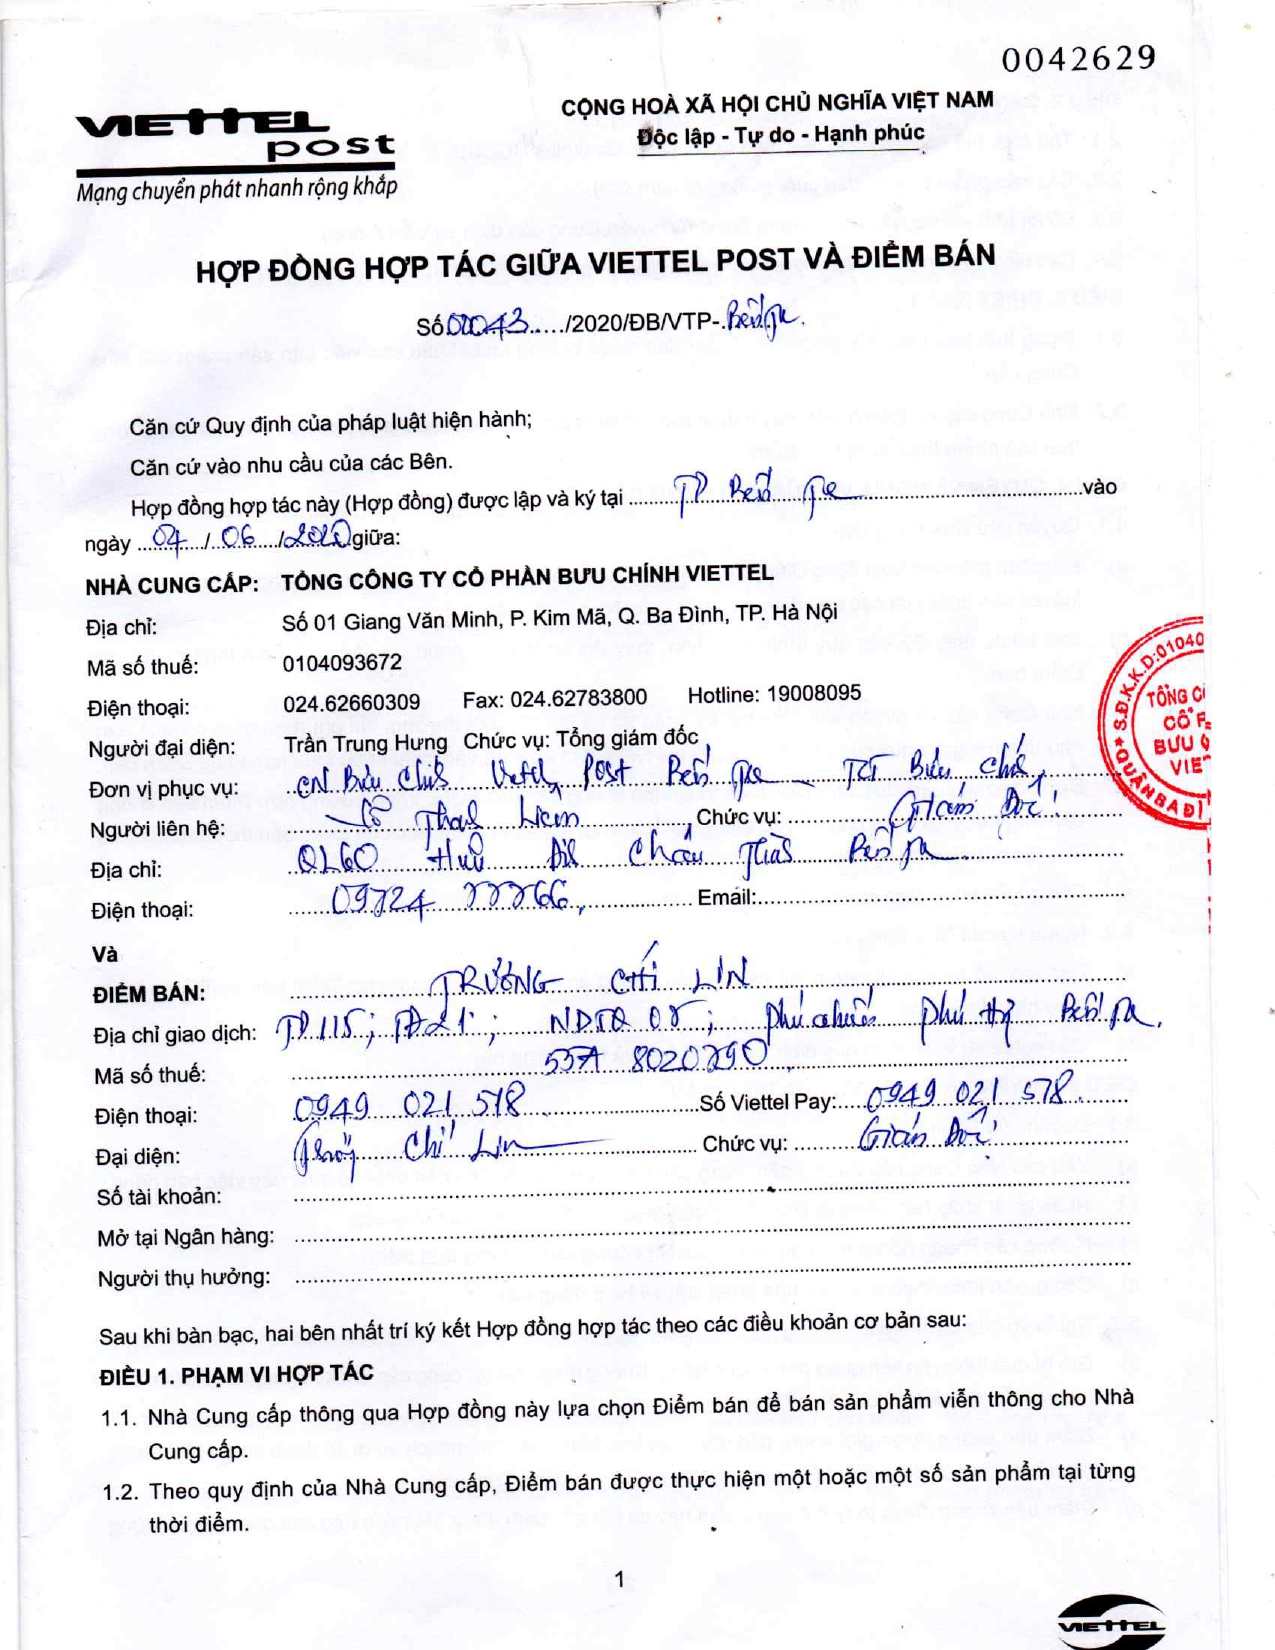 0042629
VIETTEL
post
Mạng chuyển phát nhanh rộng khắp
CỘNG HOÀ XÃ HỘI CHỦ NGHĨA VIỆT NAM
Độc lập - Tự do - Hạnh phúc
HỢP ĐỒNG HỢP TÁC GIỮA VIETTEL POST VÀ ĐIỂM BÁN
Số ...../2020/ĐB/VTP-.Bến Tre.
Căn cứ Quy định của pháp luật hiện hành;
Căn cứ vào nhu cầu của các Bên.
Hợp đồng hợp tác này (Hợp đồng) được lập và ký tại ........TP Bến Tre........vào
ngày ..04../..06../2020 giữa:
NHÀ CUNG CẤP: TỔNG CÔNG TY CỔ PHẦN BƯU CHÍNH VIETTEL
Địa chỉ: Số 01 Giang Văn Minh, P. Kim Mã, Q. Ba Đình, TP. Hà Nội
Mã số thuế: 0104093672
Điện thoại: 024.62660309 Fax: 024.62783800 Hotline: 19008095
Người đại diện: Trần Trung Hưng Chức vụ: Tổng giám đốc
Đơn vị phục vụ: CN Bưu Chính Viettel Post Bến Tre - TCT Bưu Chính
Người liên hệ: Thanh Liêm Chức vụ: Giám Đốc
Địa chỉ: QL60 Hữu Định Châu Thành Bến Tre
Điện thoại: Email:
Và
ĐIỂM BÁN: TRƯƠNG CHÍ LIN
Địa chỉ giao dịch: 115; TĐ21; phú chiến phú Hự Bến Tre.
Mã số thuế: 55A 8020290
Điện thoại: 0949 021 578 Số Viettel Pay: 0949 021 578.
Đại diện: Chí Lin Chức vụ: Giám Đốc
Số tài khoản:
Mở tại Ngân hàng:
Người thụ hưởng:
S.Đ.K.K.D:01040
TỔNG C
CỔ P
BƯU
VIE
★ QUẬN BA ĐÌ
Sau khi bàn bạc, hai bên nhất trí ký kết Hợp đồng hợp tác theo các điều khoản cơ bản sau:
ĐIỀU 1. PHẠM VI HỢP TÁC
1.1. Nhà Cung cấp thông qua Hợp đồng này lựa chọn Điểm bán để bán sản phẩm viễn thông cho Nhà
Cung cấp.
1.2. Theo quy định của Nhà Cung cấp, Điểm bán được thực hiện một hoặc một số sản phẩm tại từng
thời điểm.
1
VIETTEL